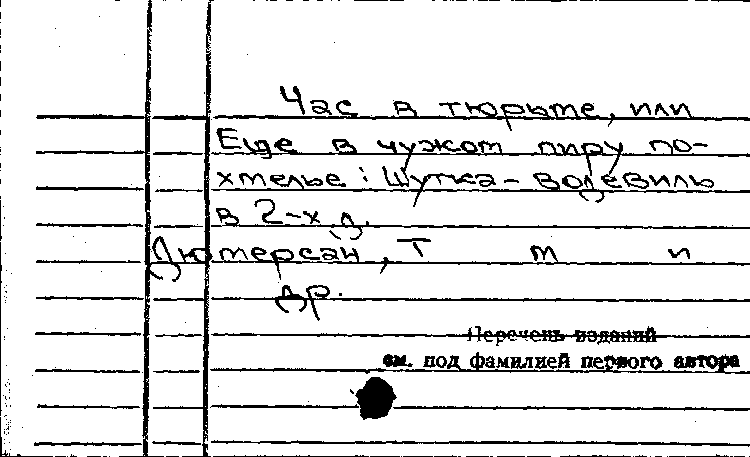 Час в тюрьме, или
Еще в чужом пиру по-
хмелье: Шутка-водевиль
в 2-х д.
Дюмерсан, Т м и
др.
Перечень изданий
см. под фамилией первого автора